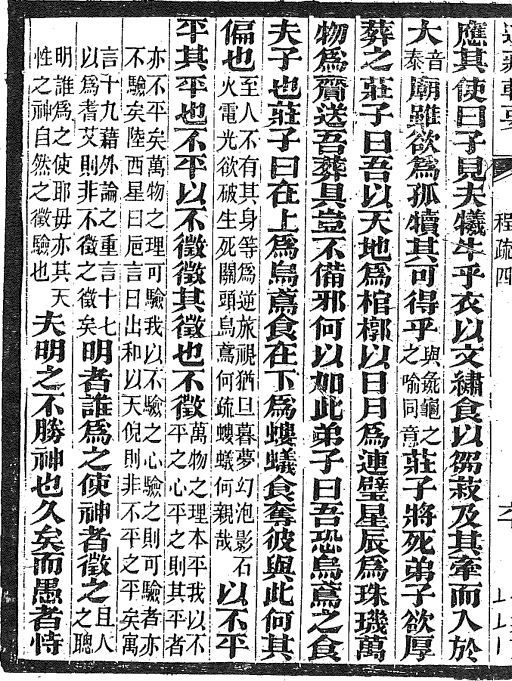 程疏四
應其使曰子見夫犧牛乎衣以文繡食以芻菽及其牽而入於
大音泰廟雖欲為孤犢其可得乎與彘龜之之喻同意莊子將死弟子欲厚
葬之莊子曰吾以天地為棺槨以日月為連璧星辰為珠璣萬
物為齎送吾葬具豈不備邪何以如此弟子曰吾恐烏鳶之食
夫子也莊子曰在上為烏鳶食在下為螻蟻食奪彼與此何其
偏也至人不有其身等為逆旅視猶旦暮夢幻泡影石火電光欲破生死關頭烏鳶何疏螻蟻何親哉以不平
平其平也不平以不徵徵其徵也不徵萬物之理本平我以不平之心平之則其平者
亦不平矣萬物之理可驗我以不驗之心驗之則可驗者亦不驗矣陸西星曰巵言日出和以天倪則非不平之平矣寓
言十九藉外論之重言十七以為耆艾則非不徵之徵矣明者誰為之使神者徵之且人之聰
明誰為之使耶毋亦其天性之神自然之徵驗也夫明之不勝神也久矣而愚者恃